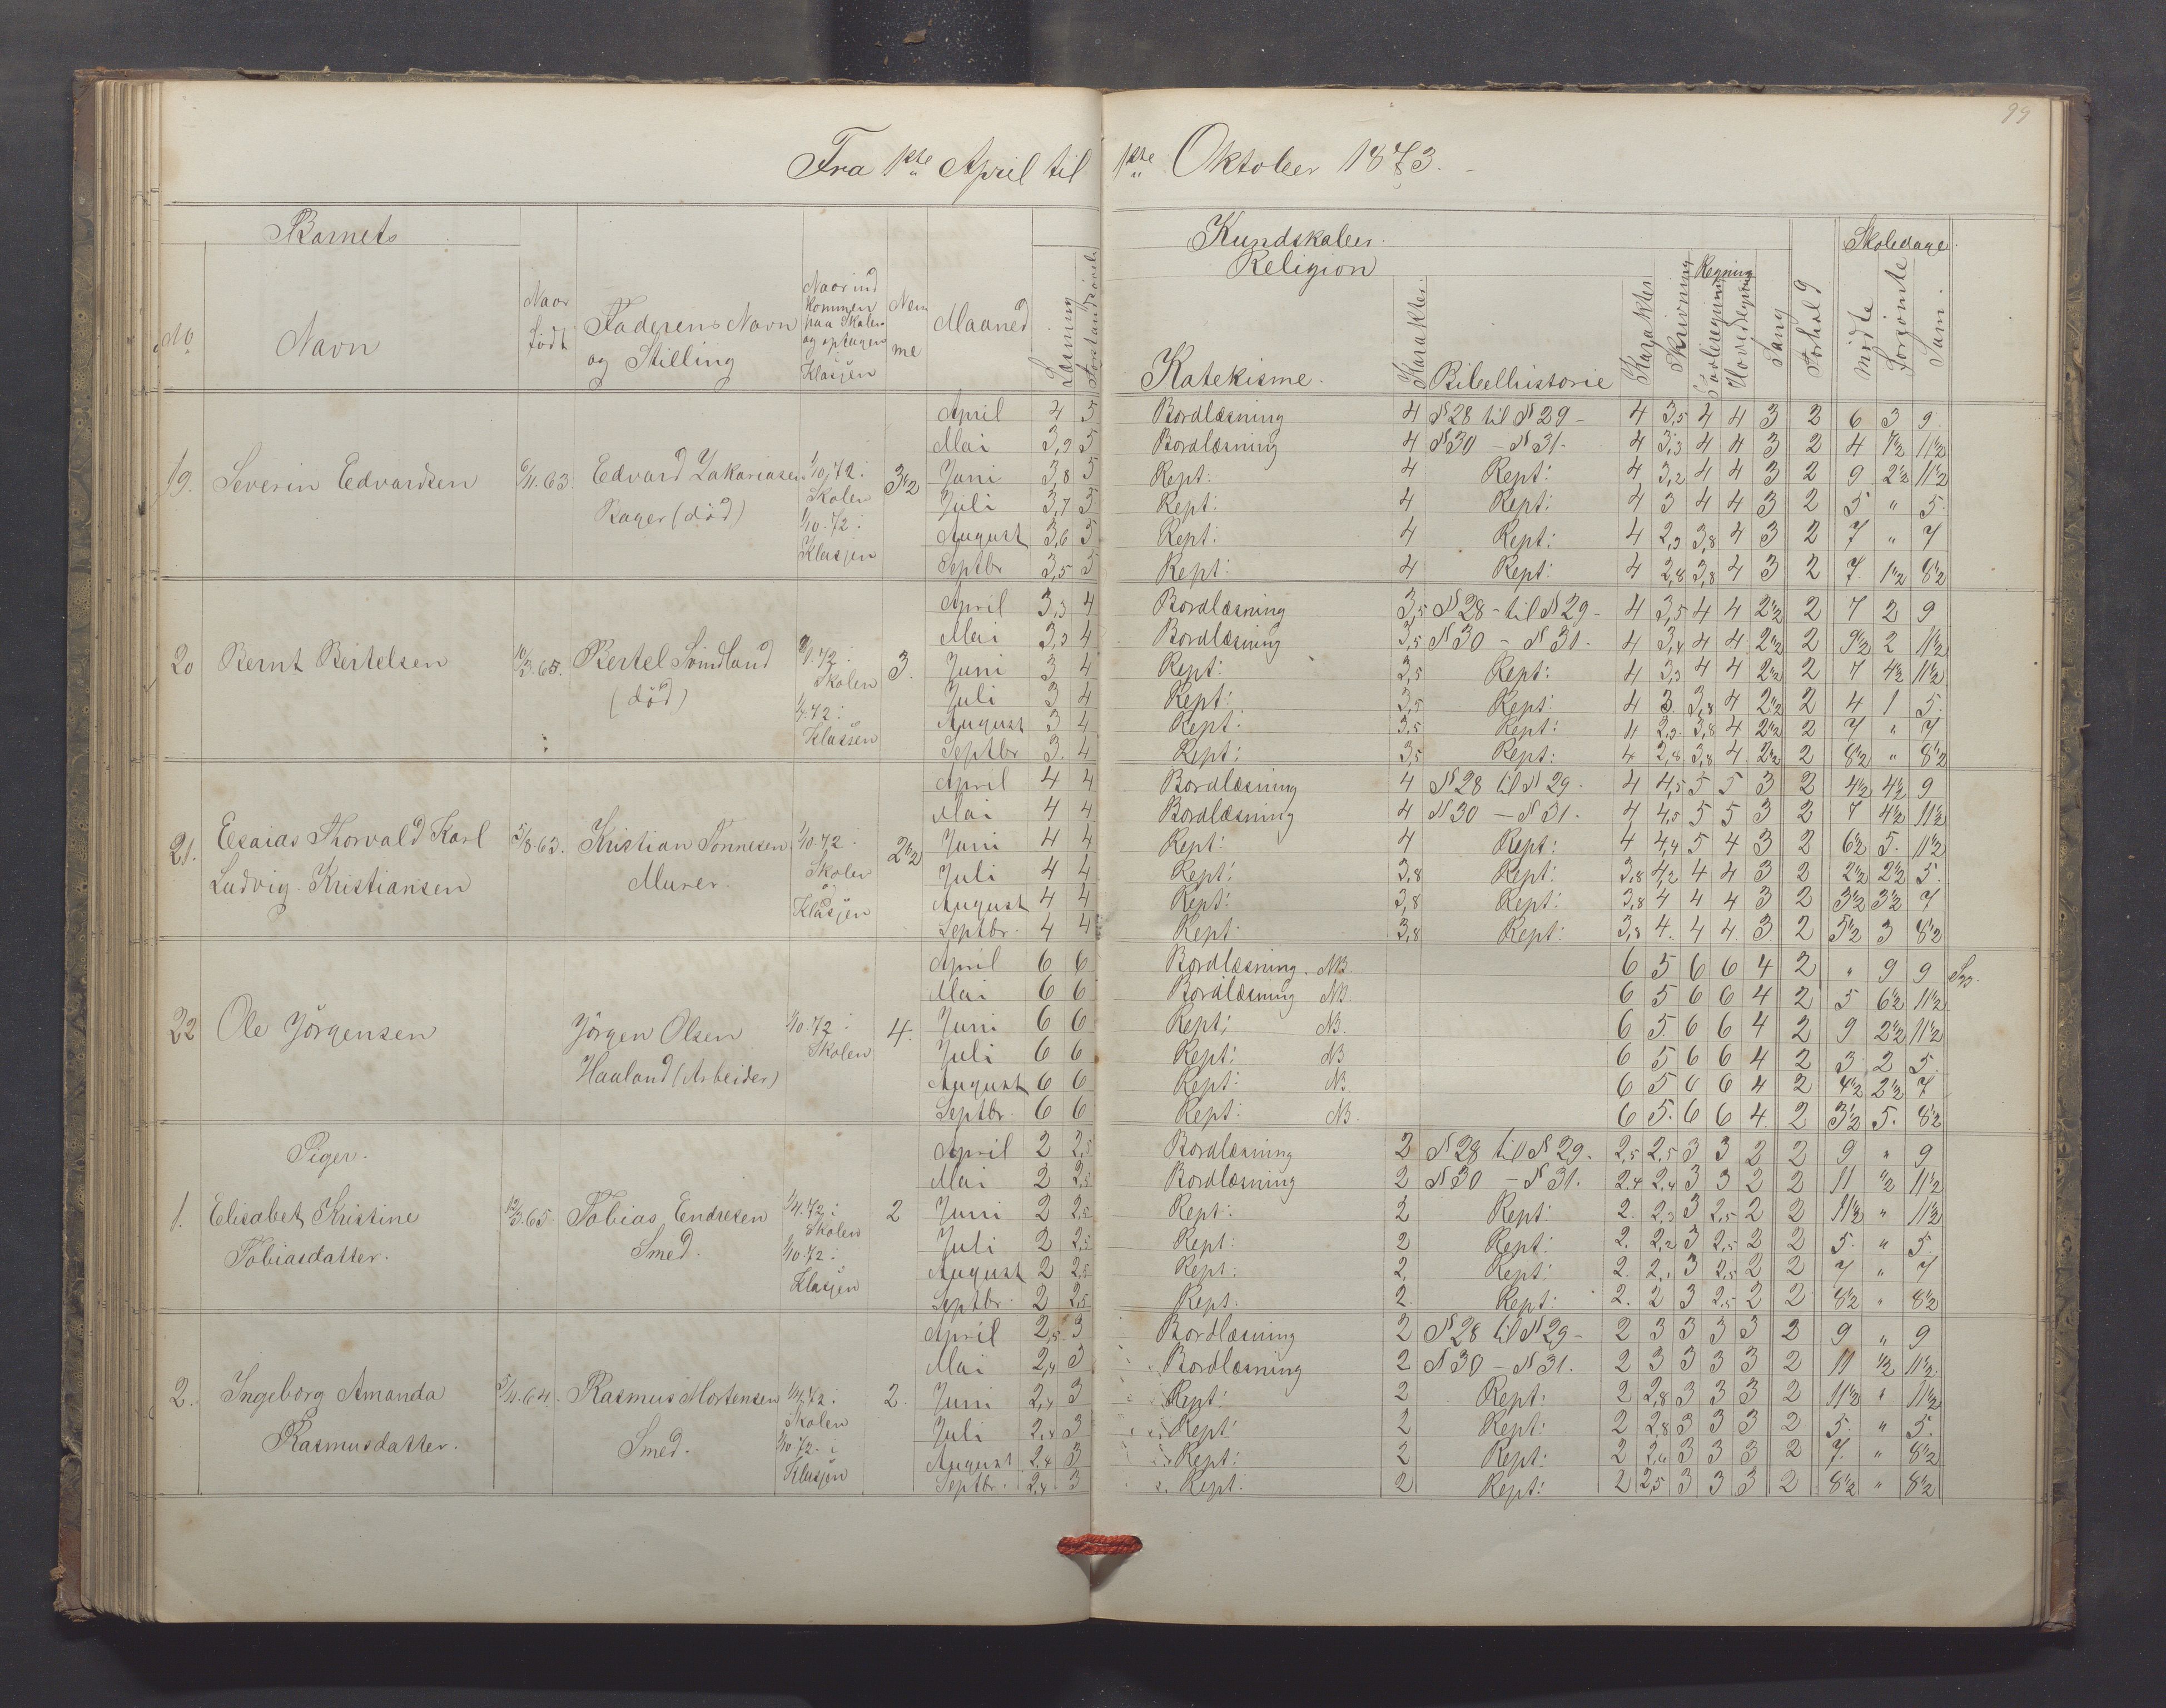 99
Fra 1ste April til 1ste Oktober 1873.
Barnets
Kundskaber.
Skoledage.
Religion
Regning
No Navn Naar født Faderens Navn og Stilling Naar indkommen paa Skolen og optagen i Klassen Nemme Maaned Læsning Forstandsøvelse Katekisme. Karakter. Bibelhistorie Karakter Skrivning Tavleregning Hovedregning Sang Forhold Mødte Forsømte Sum.
19. Severin Edvardsen 6/11.63. Edvard Zakariasen Bager (død) 1/10.72 i Skolen 1/10.72 i Klassen 3 1/2
April 4 5 Bordlæsning 4 N 28 til N 29 - 4 3,5 4 4 3 2 6 3 9
Mai 3,9 5 Bordlæsning 4 N 30 - N 31. 4 3,3 4 4 3 2 4 7 1/2 11 1/2
Juni 3,8 5 Rept: 4 Rept: 4 3,2 4 4 3 2 9 2 1/2 11 1/2
Juli 3,7 5 Rept: 4 Rept: 4 3 4 4 3 2 5 " 5.
August 3,6 5 Rept: 4 Rept: 4 2,9 3,8 4 3 2 7 " 7
Septbr 3,5 5 Rept: 4 Rept: 4 2,8 3,8 4 3 2 7. 1 1/2 8 1/2
20 Bernt Bertelsen 10/3.65. Bertel Svindland (død) 8/1.72 i Skolen 1/4.72 i Klassen 3.
April 3,3 4 Bordlæsning 3,5 N 28 - til N 29 - 4 3,5 4 4 2 1/2 2 7 2 9
Mai 3,3 4 Bordlæsning 3,5 N 30 - N 31. 4 3,4 4 4 2 1/2 2 9 1/2 2 11 1/2
Juni 3 4 Rept: 3,5 Rept: 4 3,3 4 4 2 1/2 2 7 4 1/2 11 1/2
Juli 3 4 Rept: 3,5 Rept: 4 3. 3,8 4 2 1/2 2 4 1 5.
August 3 4 Rept: 3,5 Rept: 4 2,9 3,8 4 2 1/2 2 7 " 7
Septbr 3. 4 Rept: 3,5 Rept: 4 2,8 3,8 4. 2 1/2 2 8 1/2 " 8 1/2
21. Esaias Thorvald Karl Ludvig Kristiansen 5/8.63. Kristian Tønnesen Murer. 1/10.72 i Skolen og Klassen 2 1/2
April 4 4 Bordlæsning 4 N 28 til N 29. 4 4,5 5 5 3 2 4 1/2 4 1/2 9
Mai 4 4 Bordlæsning 4 N 30 - N 31. 4 4,5 5 5 3 2 7 4 1/2 11 1/2
Juni 4 4 Rept: 4 Rept: 4 4,4 5 4 3 2 6 1/2 5. 11 1/2
Juli 4 4 Rept: 3,8 Rept: 3,8 4,2 4 4 3 2 2 1/2 2 1/2 5.
August 4 4 Rept: 3,8 Rept: 3,8 4 4 4 3 2 3 1/2 3 1/2 7
Septbr. 4 4 Rept: 3,8 Rept: 3,8 4. 4 4. 3 2 5 1/2 3 8 1/2
22 Ole Jörgensen Jörgen Olsen Hauland (Arbeider) 1/10.72 i Skolen 4.
April 6 6 Bordlæsning. NB. 6 5 6 6 4 2 " 9 9
Mai 6 6 Bordlæsning NB. 6 5 6 6 4 2 5 6 1/2 11 1/2
Juni 6 6 Rept: NB. 6 5. 6 6 4 2 9 2 1/2 11 1/2
Juli 6 6 Rept: NB 6 5 6 6 4 2 3 2 5.
August 6 6 Rept: NB 6 5 6 6 4 2 4 1/2 2 1/2 7
Septbr. 6 6 Rept: NB. 6 5. 6 6 4. 2 3 1/2 5. 8 1/2
Piger.
1. Elisabet Kristine Tobiasdatter. 12/3.65 Tobias Endresen Smed. 1/4.72 i Skolen 1/10.72 i Klassen 2
April 2 2,5 Bordlæsning 2 N 28 til N 29. 2,5 2,5 3 3 2 2 9 " 9
Mai 2 2,5 Bordlæsning 2 N 30 - N 31. 2,4 2,4 3 3 2 2 11 1/2 11 1/2
Juni 2 2,5 Rept: 2 Rept: 2. 2,3 3 2,5 2 2 11 1/2 " 11 1/2
Juli 2 2,5 Rept: 2 Rept: 2. 2,2 3 2,5 2 2 5. " 5.
August 2 2,5 Rept: 2. Rept: 2. 2,1 3 2,5 2 2 7 " 7
Septbr. 2 2,5 Rept. 2. Rept: 2. 2 3 2,5 2 2 8 1/2 " 8 1/2
2. Ingeborg Amanda Rasmusdatter. 5/11.64. Rasmus Mortensen Smed. 1/4.72 i Skolen 1/10.72. i Klassen 2.
April 2,5 3 Bordlæsning 2 N 28 til N 29 - 2 3 3 3 3 2 9 " 9
Mai 2,4 3 Bordlæsning 2 N 30 - N 31. 2 3 3 3 3 2 11 1/2 11 1/2
Juni 2,4 3 Rept: 2 Rept: 2 2,8 3 3 3 2 11 1/2 " 11 1/2
Juli 2,4 3 Rept: 2 Rept: 2 2,8 3 3 3 2 5. " 5.
August 2,4 3 Rept: 2 Rept: 2 2,6 3 3 3 2 7. " 8 1/2
Septbr. 2,4 3 Rept. 2 Rept: 2 2,5 3 3 3 2 8 1/2 " 8 1/2